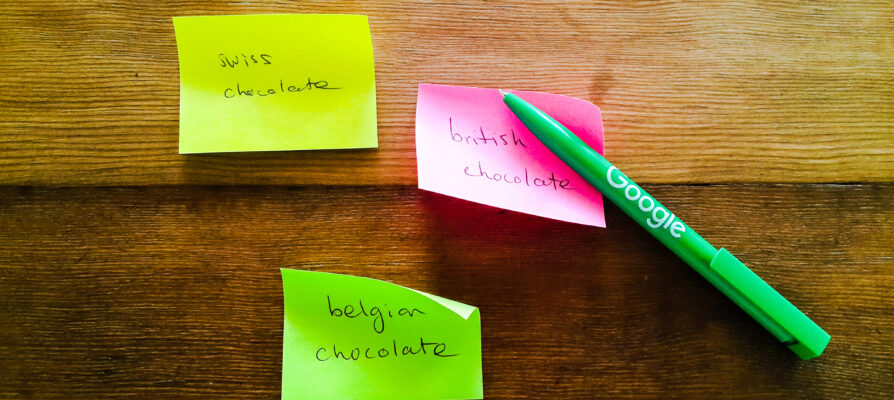 swiss
chocolate
british
chocolate
Google
belgian
chocolate